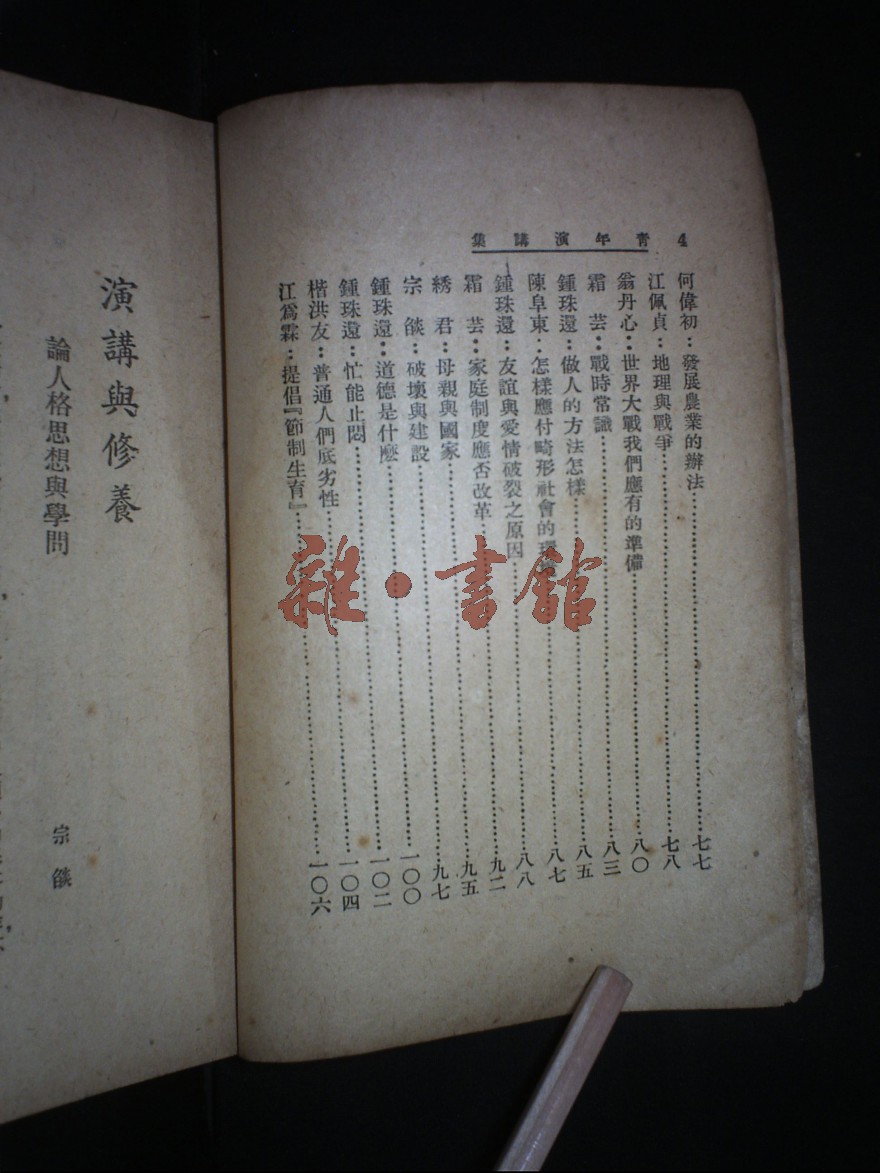 4 青年演講集
何偉初：發展農業的辦法……七七
江佩貞：地理與戰爭……七八
翁丹心：世界大戰我們應有的準備……八〇
霜　芸：戰時常識……八三
鍾珠還：做人的方法怎樣……八五
陳阜東：怎樣應付畸形社會的環……八七
鍾珠還：友誼與愛情破裂之原因……八八
霜　芸：家庭制度應否改革……九二
綉　君：母親與國家……九五
宗　燄：破壞與建設……九七
鍾珠還：道德是什麽……一〇〇
鍾珠還：忙能止悶……一〇二
楷洪友：普通人們底劣性……一〇四
江爲霖：提倡『節制生育』……一〇六
雜·書館
演講與修養
論人格思想與學問
宗　燄